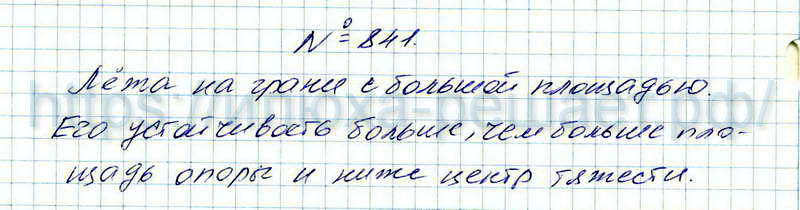 № 841.
Лёжа на грани с большой площадью.
Его устойчивость больше, чем больше пло-
щадь опоры и ниже центр тяжести.